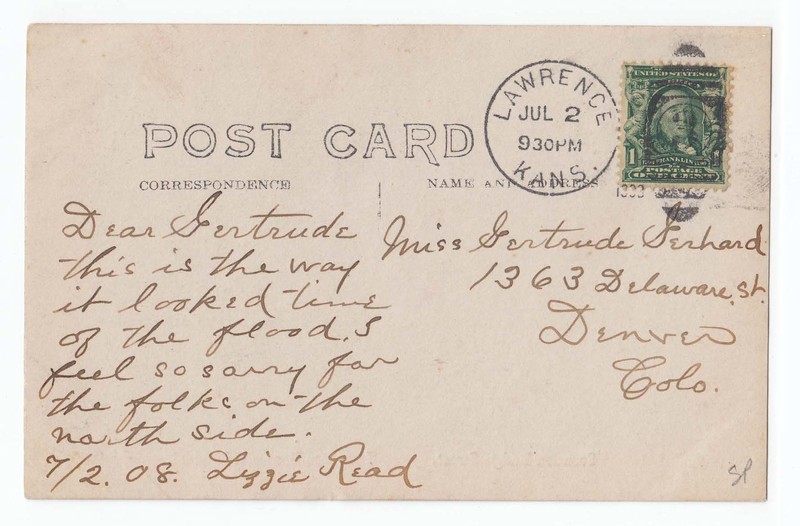 LAWRENCE
JUL 2
930PM
KANS.
UNITED STATES OF
1 FRANKLIN 1
POSTAGE
ONE CENT
POST CARD
CORRESPONDENCE
NAME AND ADDRESS
Dear Gertrude
this is the way
it looked time
of the flood. I
feel so sorry for
the folks on the
north side.
7/2. 08. Lizzie Read
Miss Gertrude Gerhard
1363 Delaware. St.
Denver
Colo.